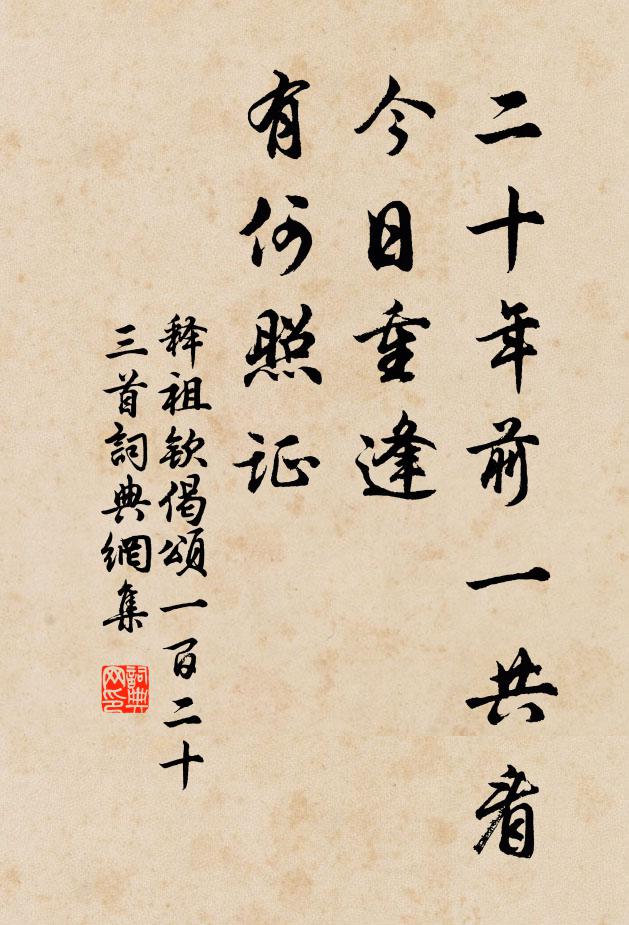 二十年前一共看
今日重逢
有何照证
释祖钦偈頌一百二十
三首詞典網集
詞典
网印